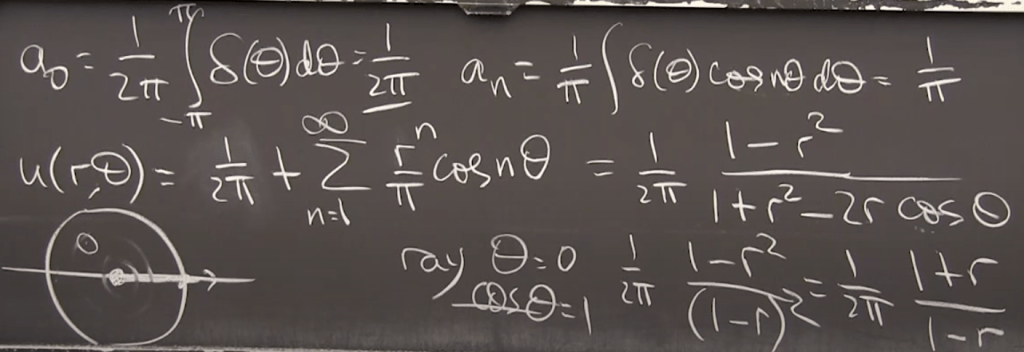 a₀ = 1/2π ∫_{-π}^{π} δ(θ)dθ = 1/2π   aₙ = 1/π ∫ δ(θ) cos nθ dθ = 1/π
u(r,θ) = 1/2π + ∑_{n=1}^{∞} rⁿ/π cos nθ = 1/2π (1 - r²)/(1 + r² - 2r cos θ)
0
ray θ = 0   1/2π (1 - r²)/(1 - r)² = 1/2π (1 + r)/(1 - r)
cos θ = 1